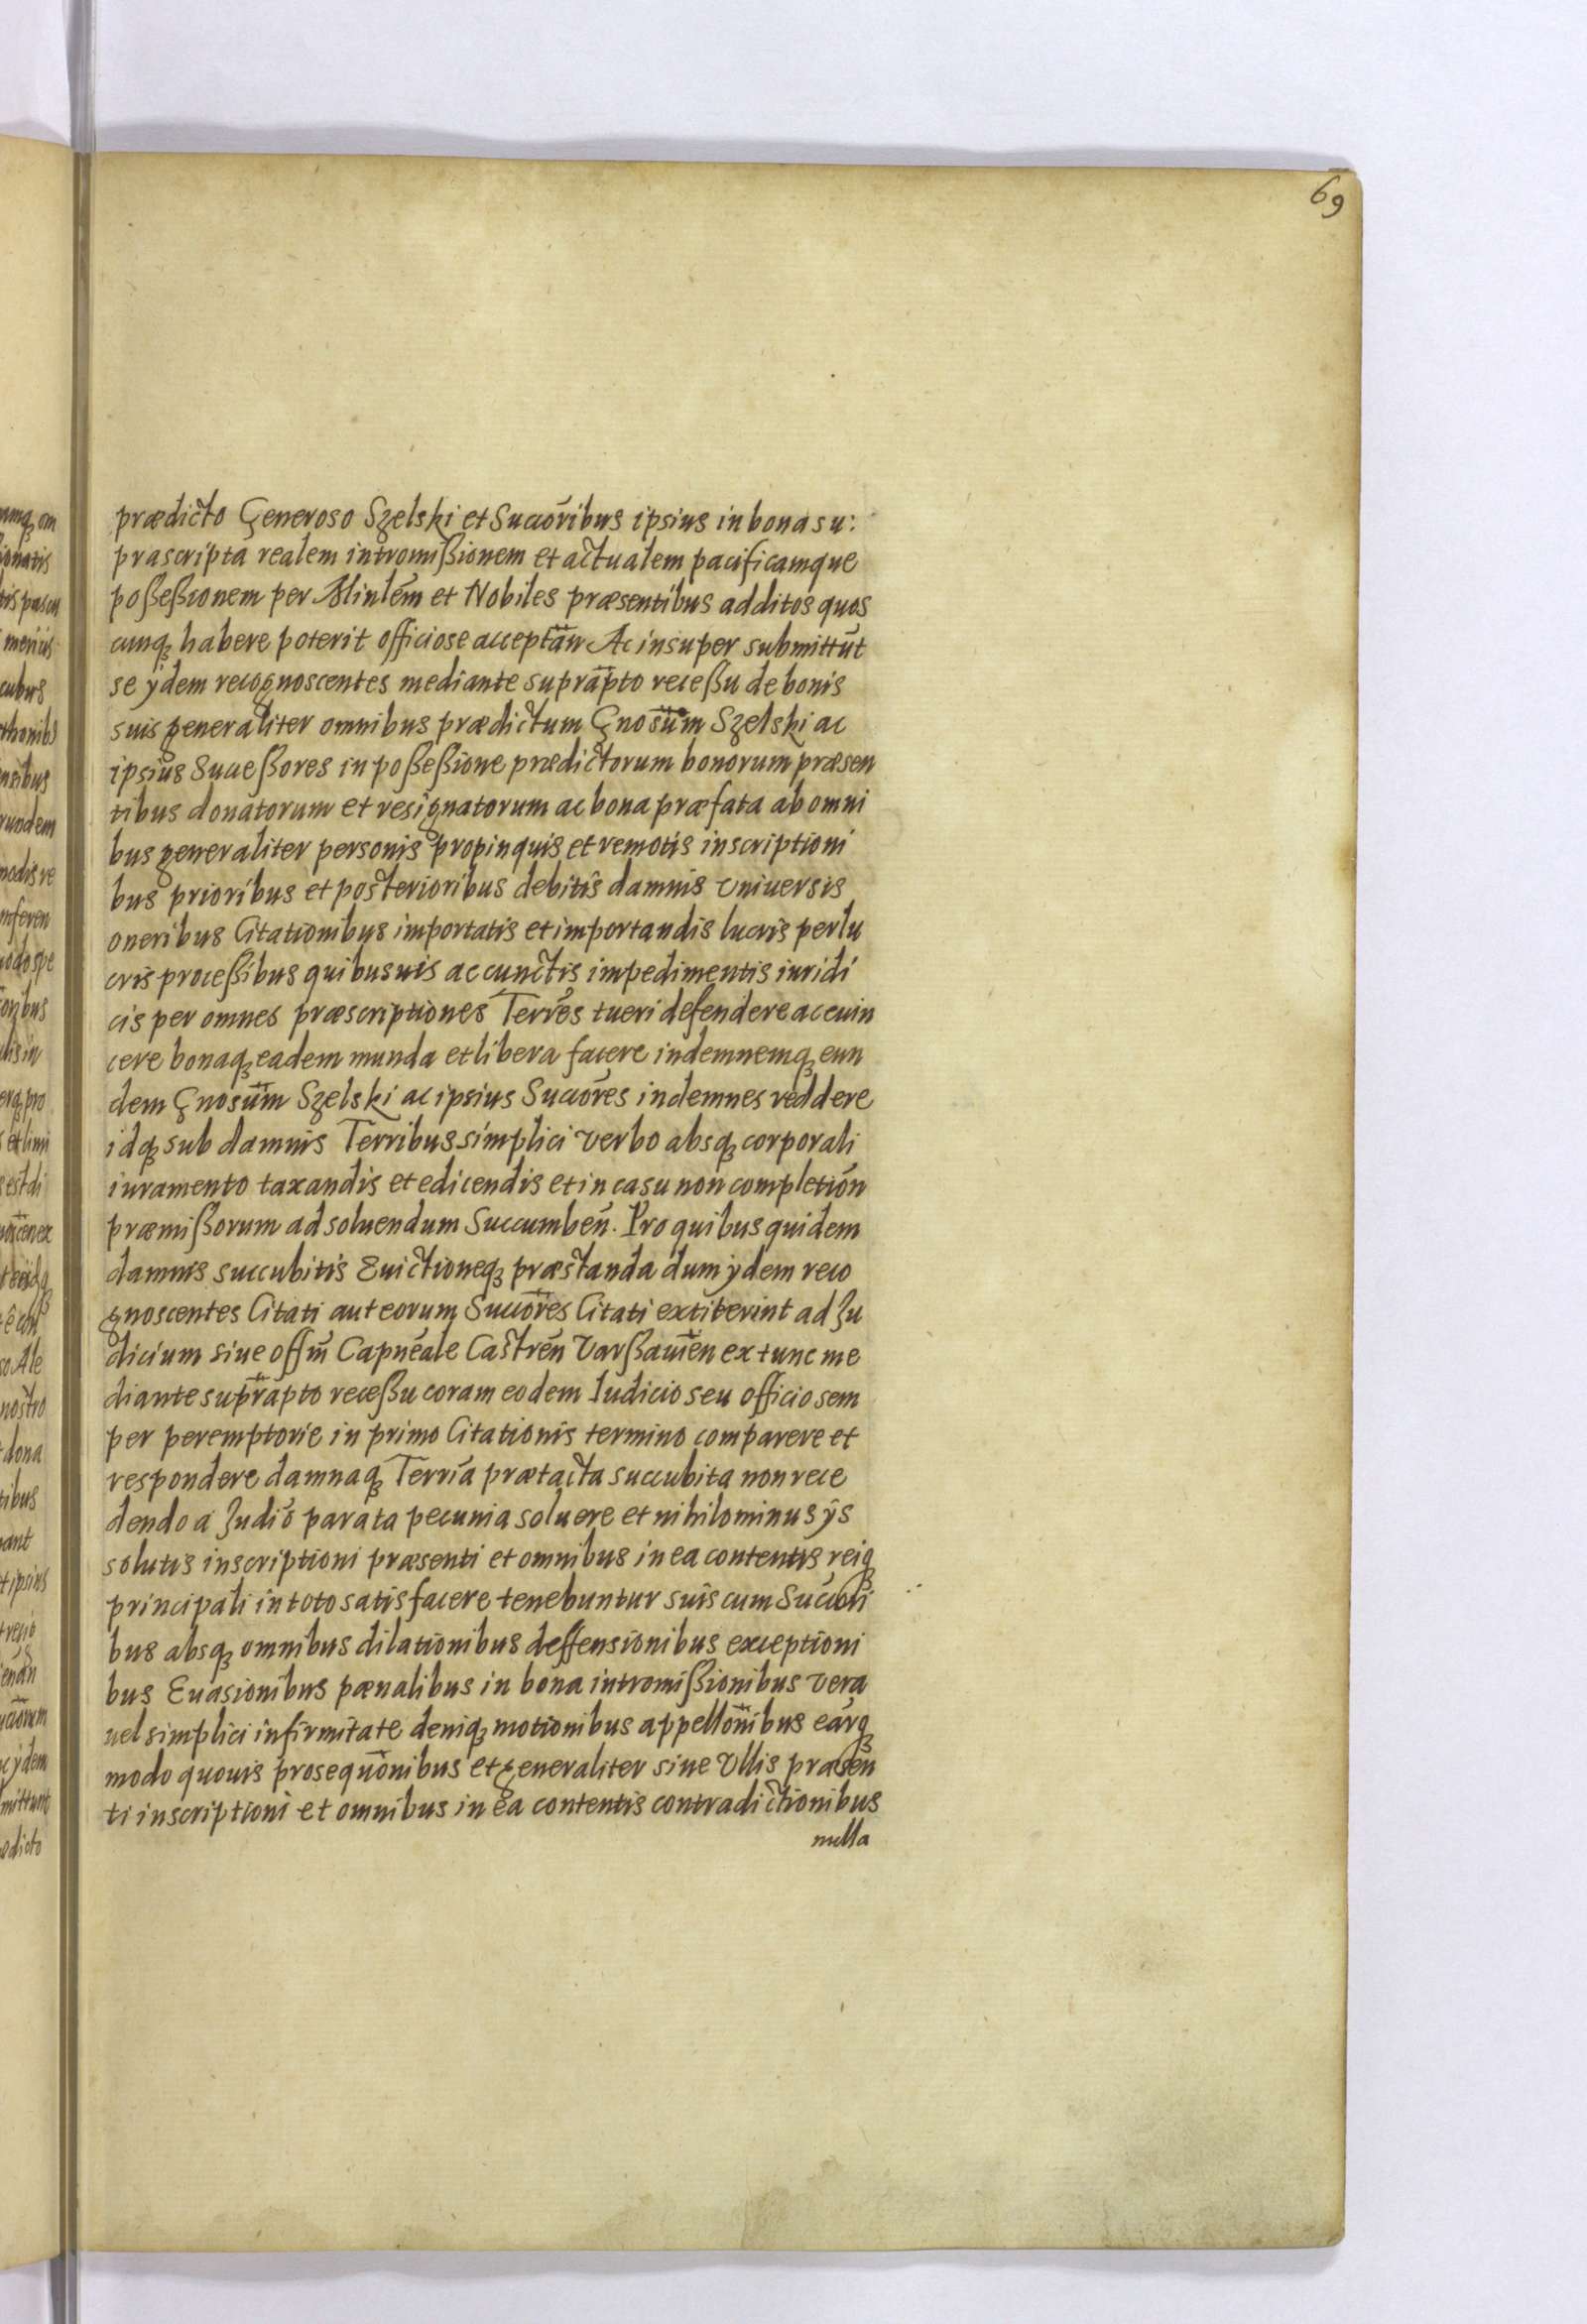 69
prædicto Generoso Szelski et Succōribus ipsius in bona su:
prascripta realem intromißionem et actualem pacificamque
poßeßionem per Minlēm et Nobiles præsentibus additos quos
cunqꝫ habere poterit officiose acceptān Ac insuper submittūt
se ÿdem recognoscentes mediante suprāpto receßu de bonis
suis generaliter omnibus prædictum Gnosūm Szelski ac
ipsius Succeßores in poßeßione prædictorum bonorum præsen
tibus donatorum et resignatorum ac bona præfata ab omni
bus generaliter personis propinquis et remotis inscriptioni
bus prioribus et posterioribus debitis damnis vniuersis
oneribus Citationibus importatis et importandis lucris perlu
cris proceßibus quibusuis ac cunctis impedimentis iuridi
cis per omnes præscriptiones Terrēs tueri defendere ac euin
cere bonaqꝫ eadem munda et libera facere indemnemqꝫ eun
dem Gnosūm Szelski ac ipsius Succōres indemnes reddere
idqꝫ sub damnis Terribus simplici verbo absqꝫ corporali
iuramento taxandis et edicendis et in casu non completiōn
præmißorum ad soluendum Succumbēn. Pro quibus quidem
damnis succubitis Euictioneqꝫ præstanda dum ÿdem reco
gnoscentes Citati aut eorum Succōres Citati extiterint ad Ju
dicium siue offm̄ Capnēale Castrēn Varßauiēn ex tunc me
diante suprāpto receßu coram eodem Iudicio seu officio sem
per peremptorie in primo Citationis termino comparere et
respondere damnaqꝫ Terrīa prætacta succubita non rece
dendo a Judiō parata pecunia soluere et nihilominus ÿs
solutis inscriptioni præsenti et omnibus in ea contentis reiqꝫ
principali in toto satisfacere tenebuntur suis cum Succōri
bus absqꝫ omnibus dilationibus deffensionibus exceptioni
bus Euasionibus pænalibus in bona intromißionibus vera
uel simplici infirmitate deniqꝫ motionibus appellōnibus eārqꝫ
modo quouis prosequōnibus et generaliter siue Vllis præsēn
ti inscriptioni et omnibus in ea contentis contradictionibus
nulla